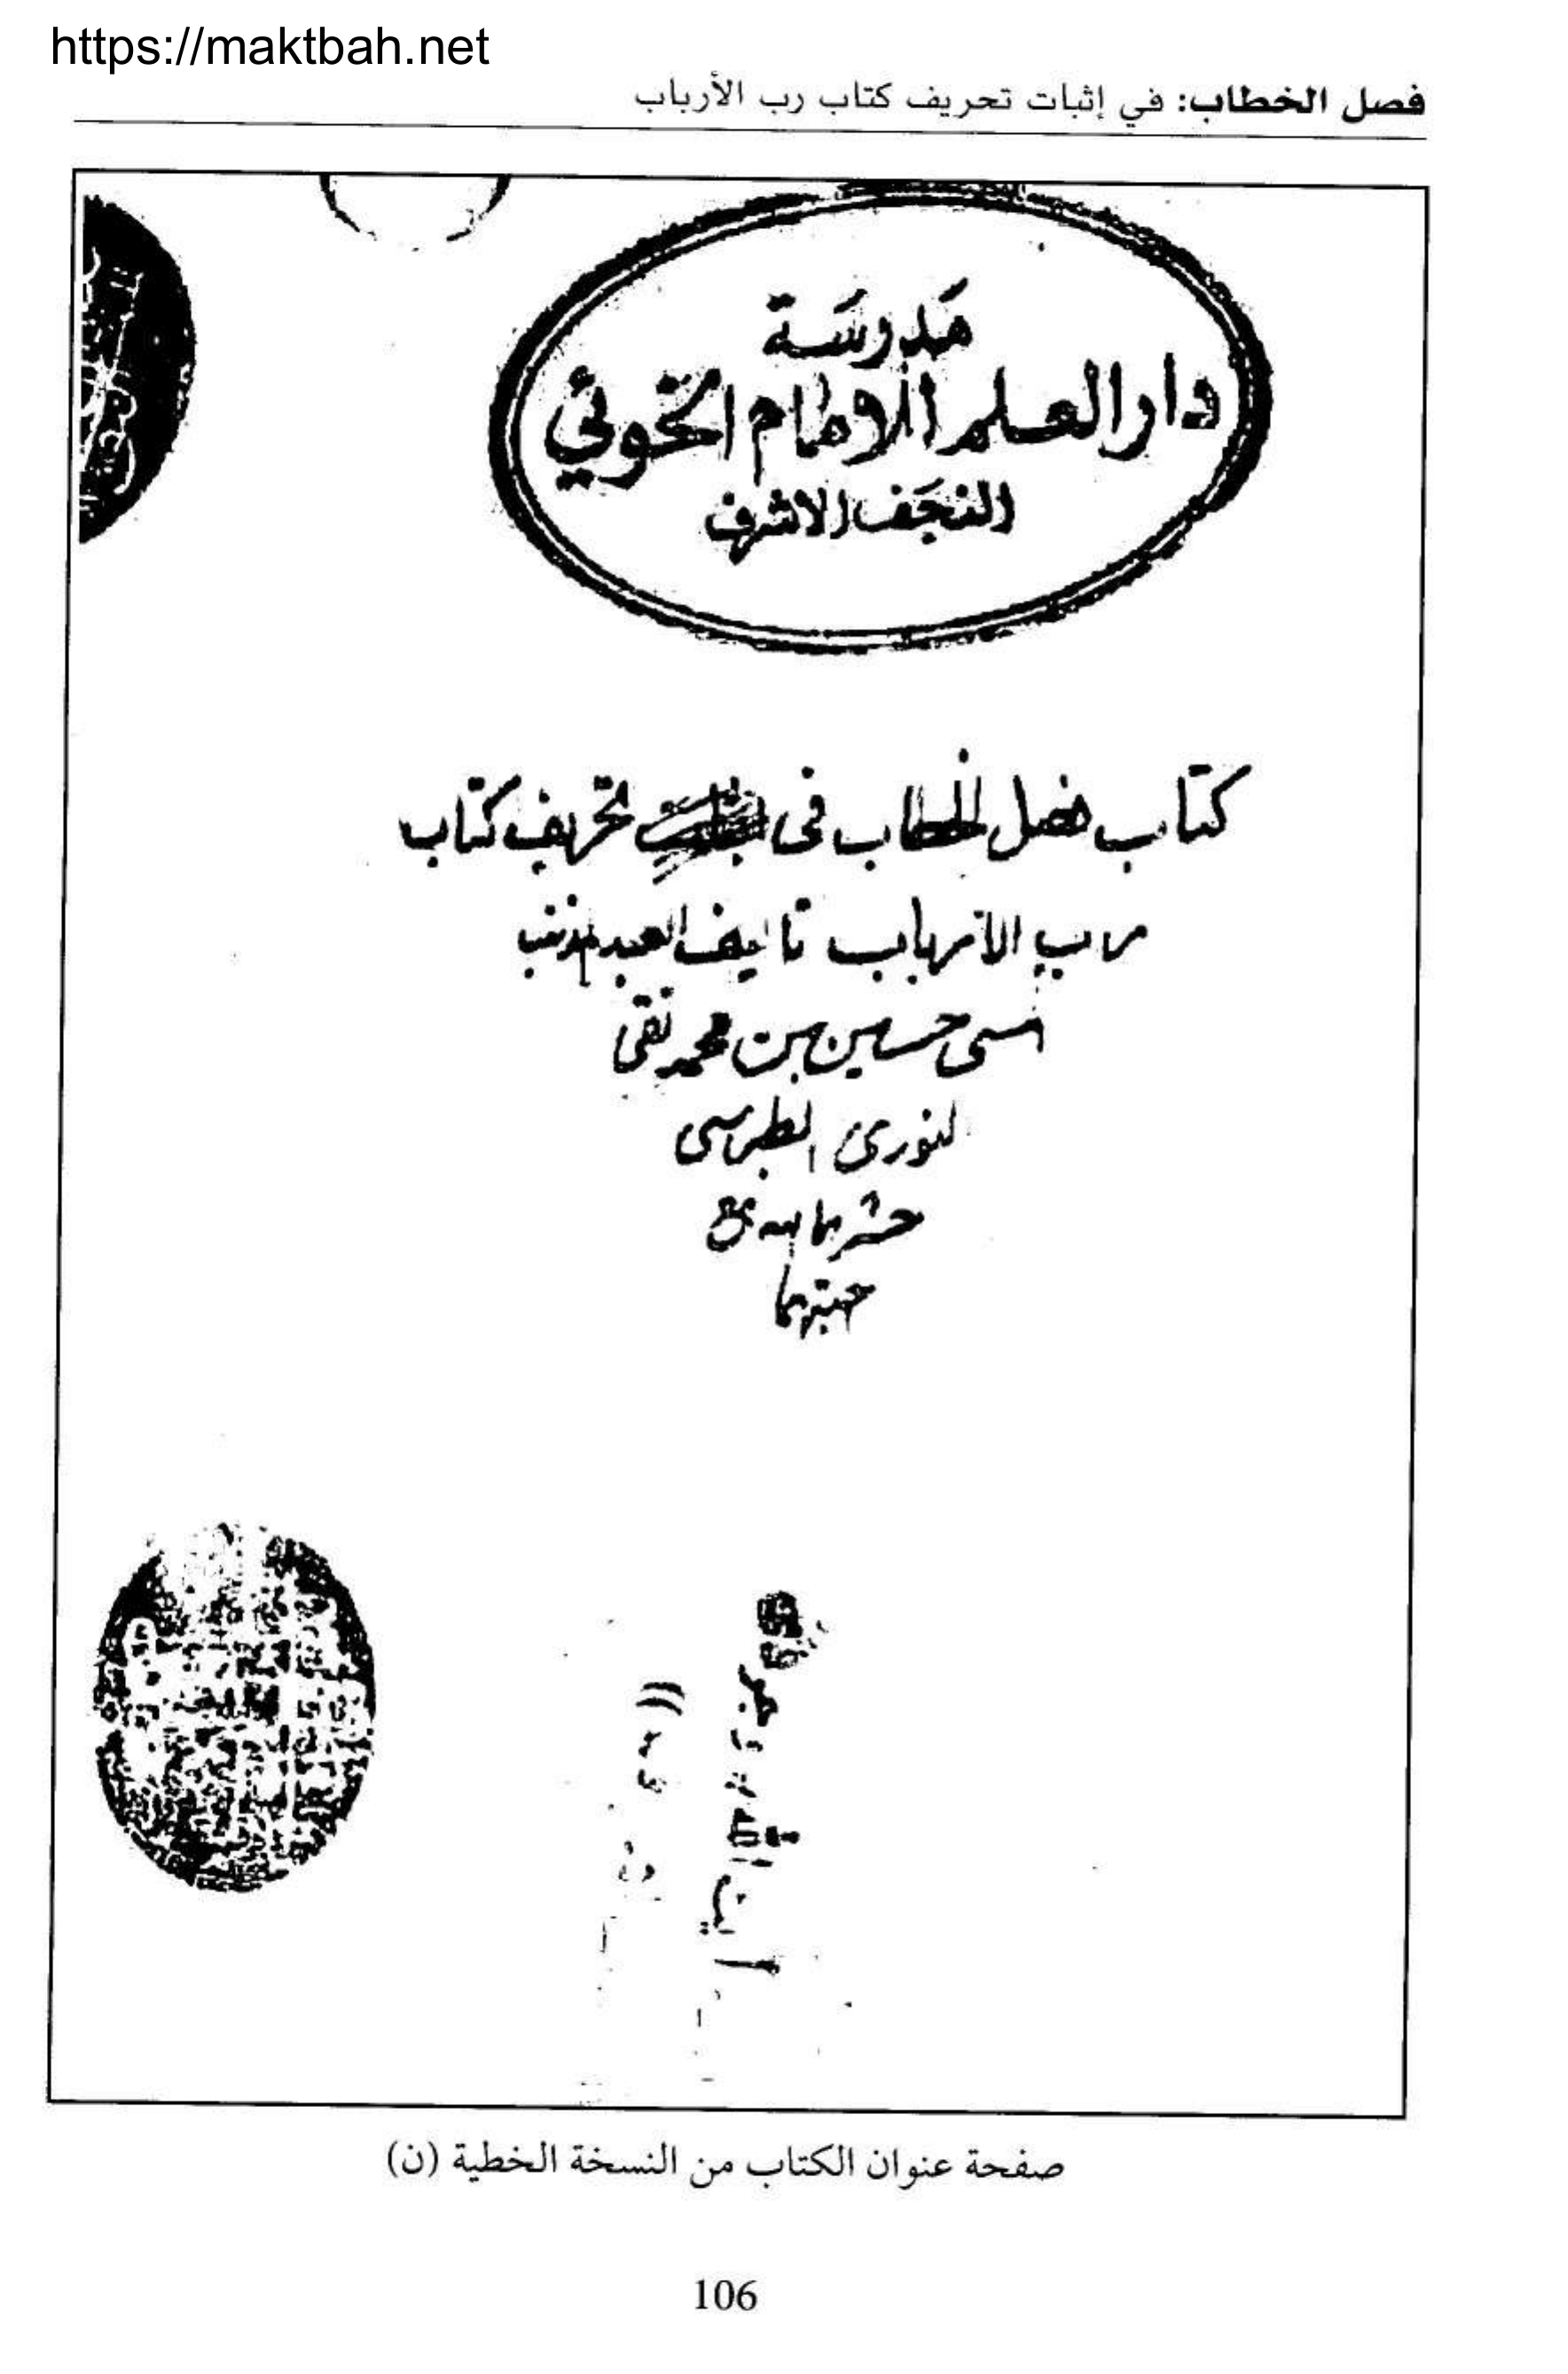 https://maktbah.net
فصل الخطاب: في إثبات تحريف كتاب رب الأرباب
مَدرسَة
دار العلم الامام الخوئي
النجَف الاشرف
كتاب فصل الخطاب فى تحريف كتاب
رب الارباب تاليف العبد المذنب
المسى حسين بن محمد تقى
النورى الطبرسى
حشرهما الله مع
صفحة عنوان الكتاب من النسخة الخطية (ن)
106